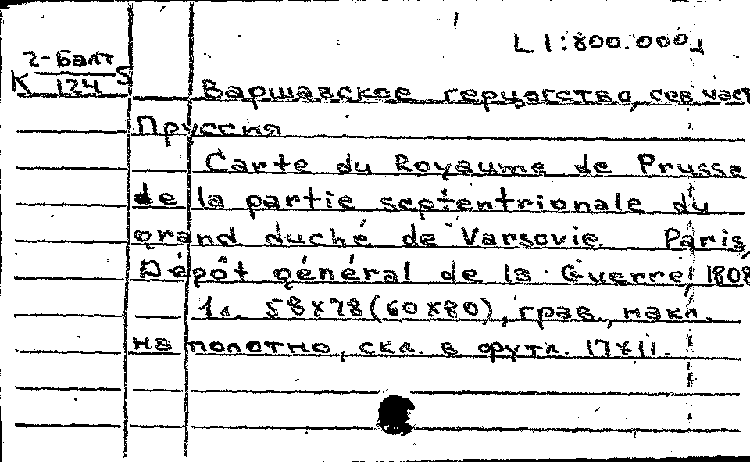 L 1:800.000
2-Балт
К 124 S
Варшавское герцогство, сев. част
Пруссия
Carte du Royaume de Prusse
de la partie septentrionale du
grand duché de Varsovie Paris,
Dépôt général de la Guerre, 1808
1 л. 58x78 (60x80), грав., накл.
на полотно, скл. в футл. 17x11.